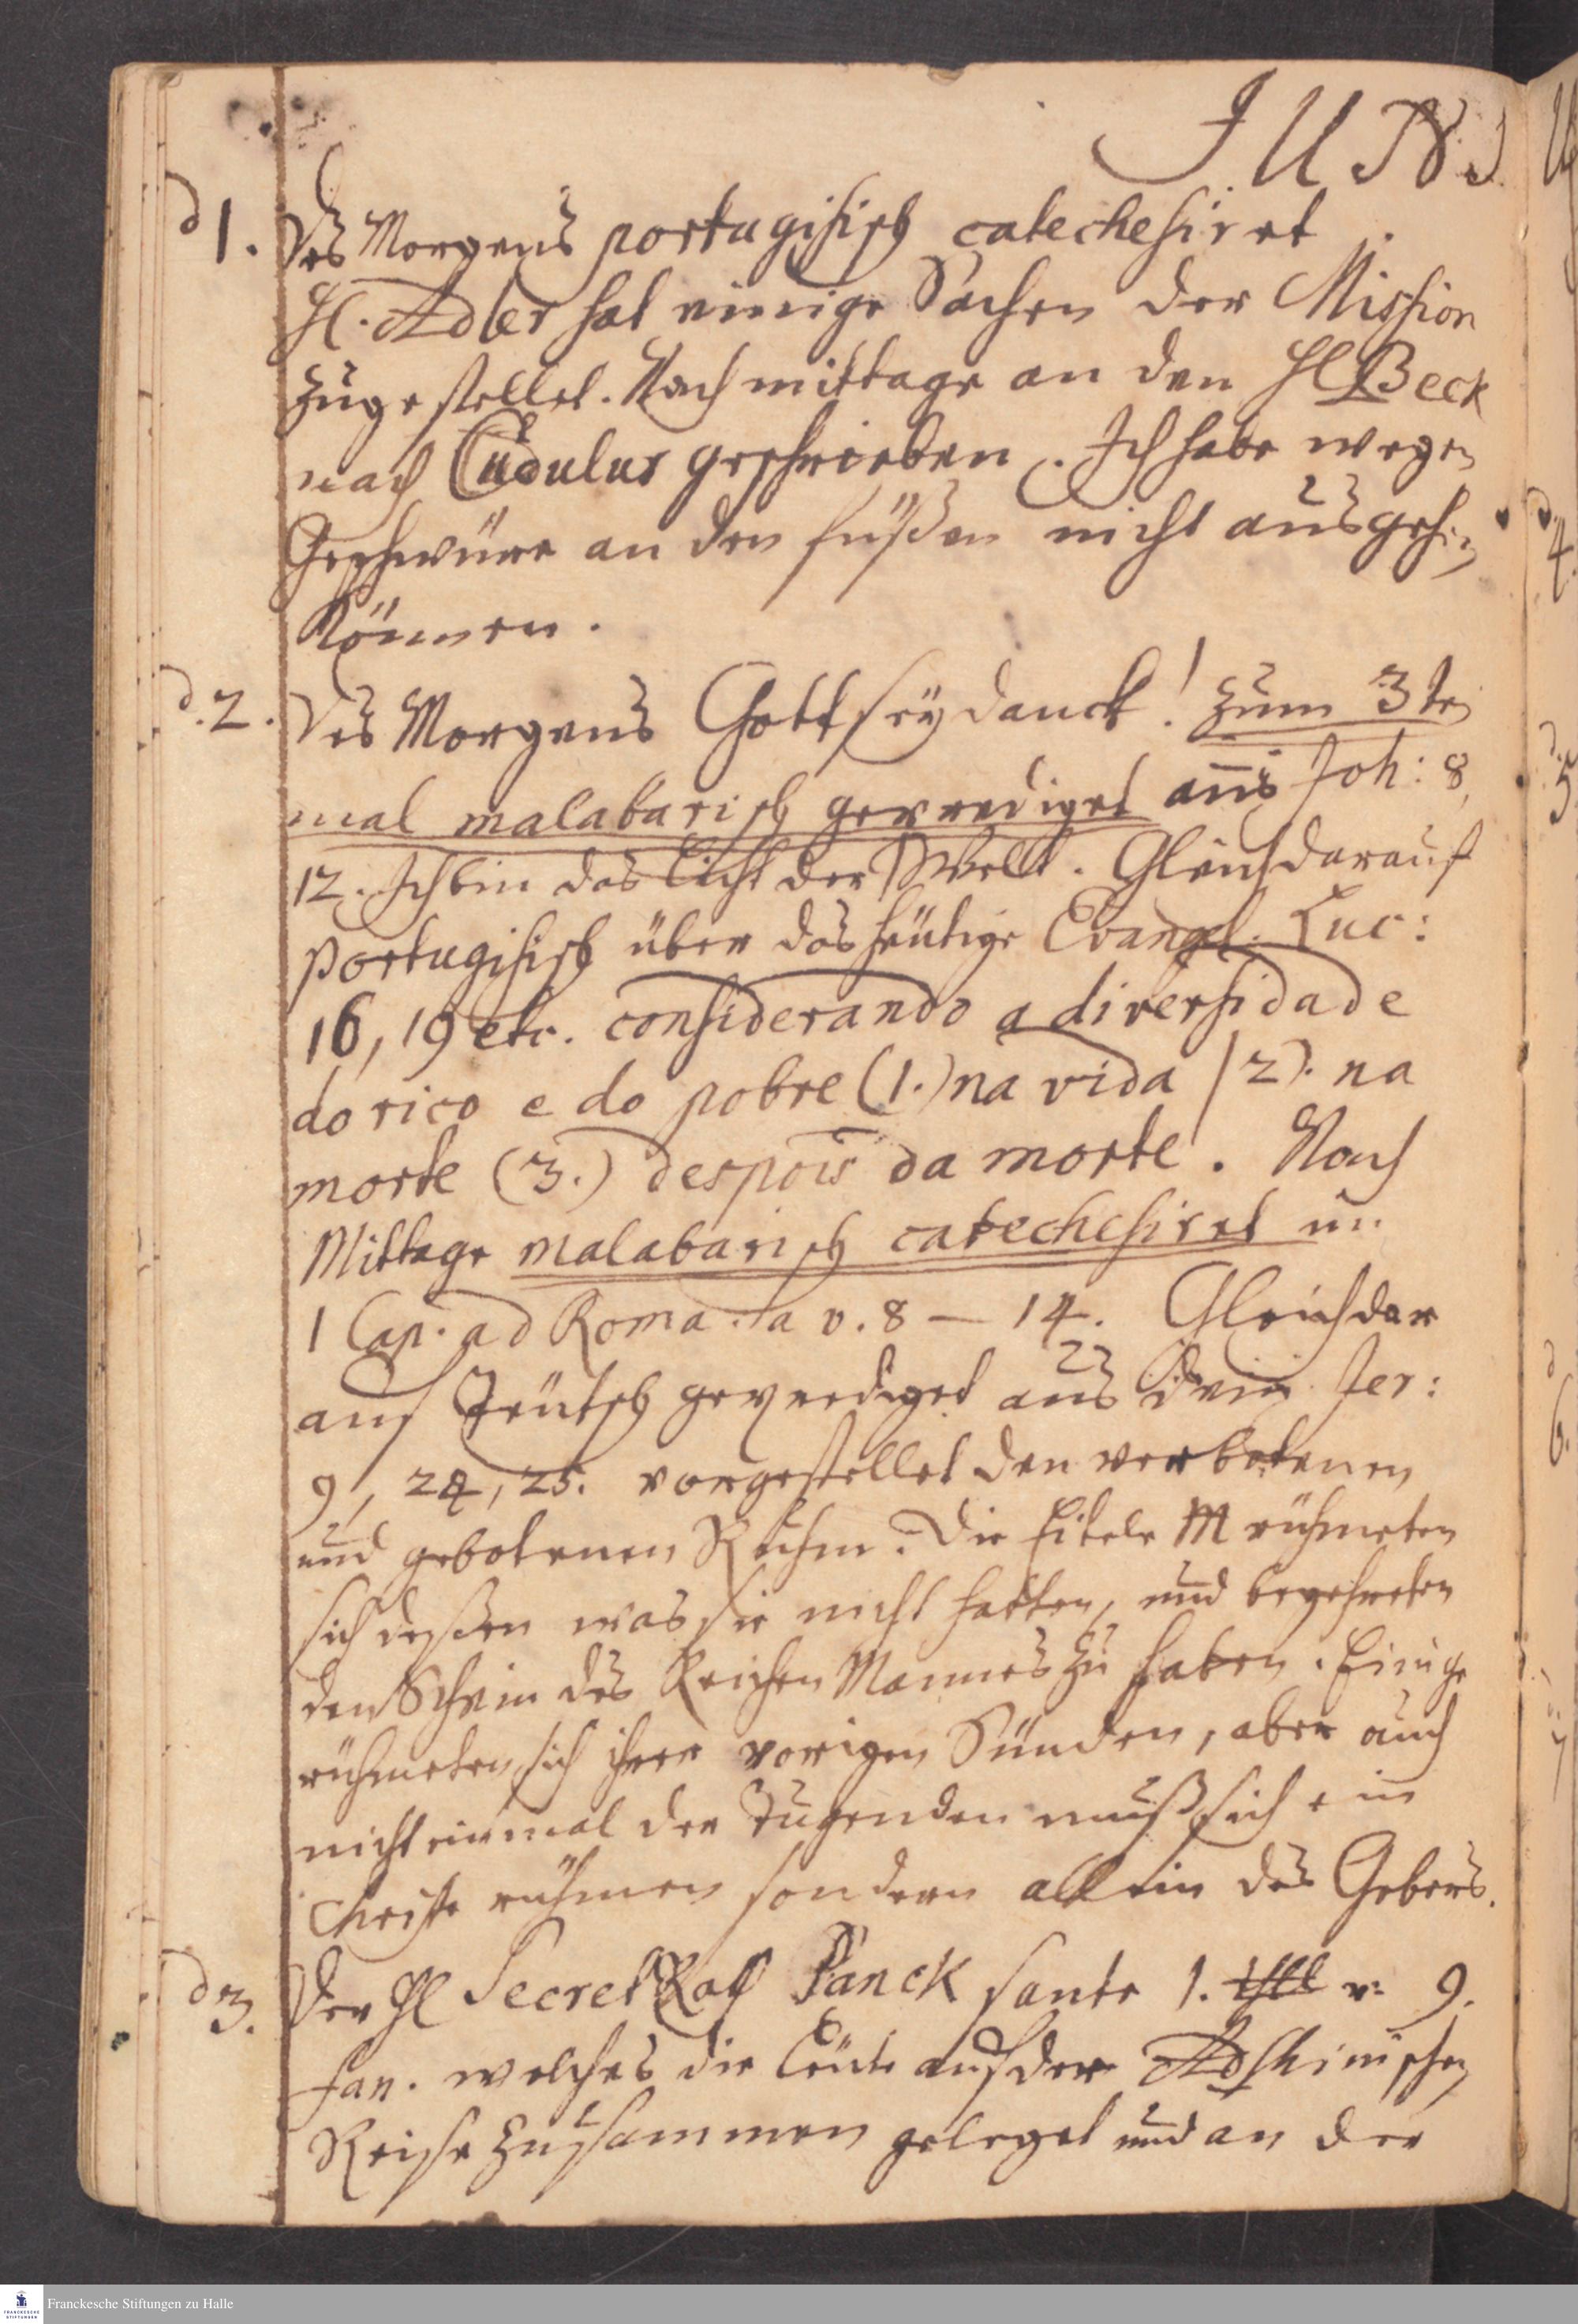 JUNI
d 1. Des Morgens portugisisch catechesiret.
H. Adler hat einige Sachen der Mission
zugestellet. Nachmittage an den H Beck
nach Cudulur geschrieben. Ich habe wegen
Geschwüre an den füßen nicht ausgehen
können.
d. 2. Des Morgens Gott sey danck! zum 3ten
mal malabarisch geprediget aus Joh: 8,
12. Ich bin das Licht der Welt. Gleich darauf
portugisisch über das heutige Evangel. Luc:
16, 19 etc. considerando a diversidade
do rico e do pobre (1.) na vida (2). na
morte (3.) despois da morte. Nach
Mittage malabarisch catechesiret
1 Cap. ad Roma. a v. 8 – 14. Gleich dar
auf Teutsch geprediget aus Jer:
9, 24, 25. vorgestellet den verbotenen
und gebotenen Ruhm. Die Eitele M rühmeten
sich deßen was sie nicht hatten, und begehreten
den Schein des Reichen Mannes zu haben. Einige
rühmeten sich ihrer vorigen Sünden, aber auch
nicht einmal der Tugenden muß sich ein
Christe rühmen sondern allein des Gebers.
d 3. Der H Secret Rath Panck sante 1. 9.
fan. welches die Leute auf der
Reise zusammen geleget und an der
Franckesche Stiftungen zu Halle